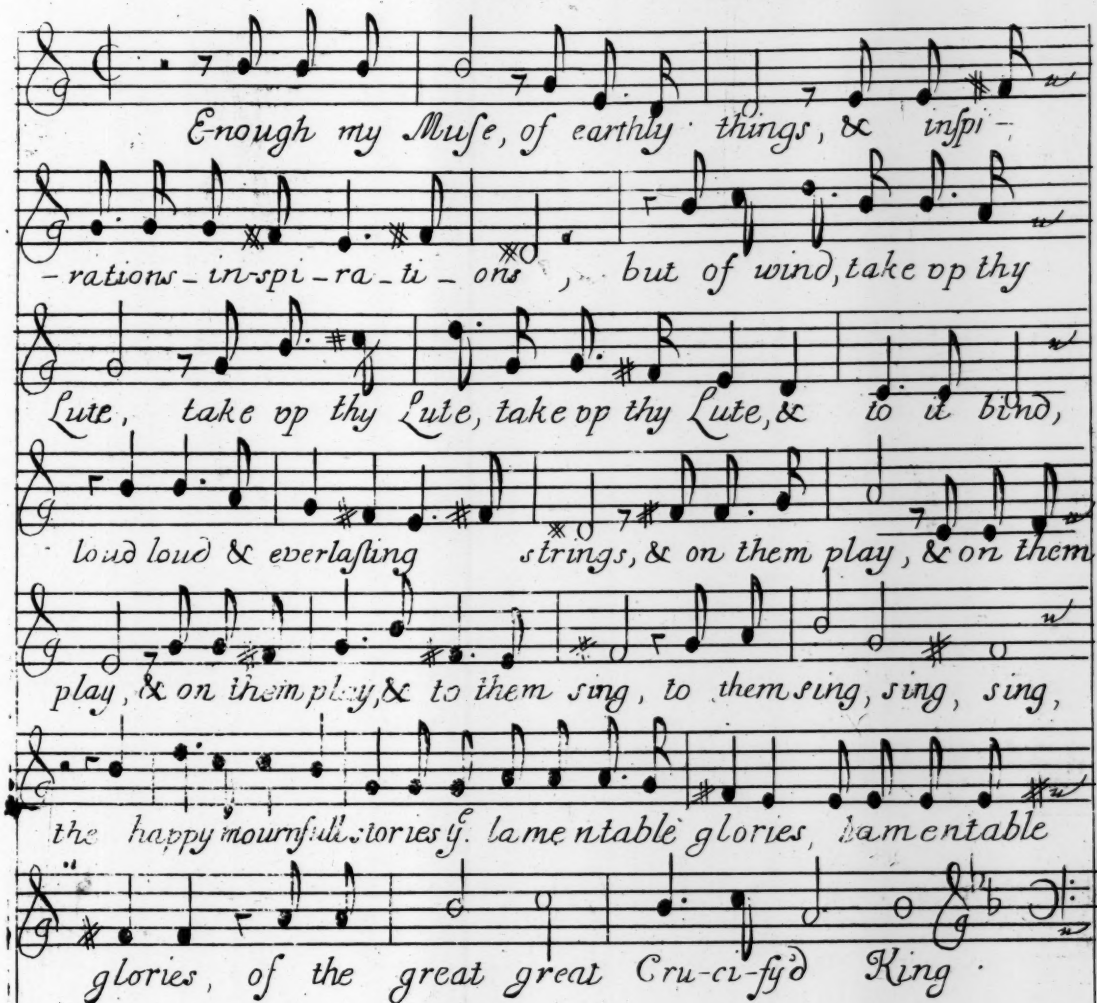 E-nough my Muſe, of earthly things, & inſpi-
-rations-in-spi-ra-ti-ons, but of wind, take vp thy
Lute, take vp thy Lute, take vp thy Lute, & to it bind,
loud loud & everlaſting strings, & on them play, & on them
play, & on them play, & to them sing, to them sing, sing, sing,
the happy mournfull stories yͤ. lamentable glories, lamentable
glories, of the great great Cru-ci-fy'd King.